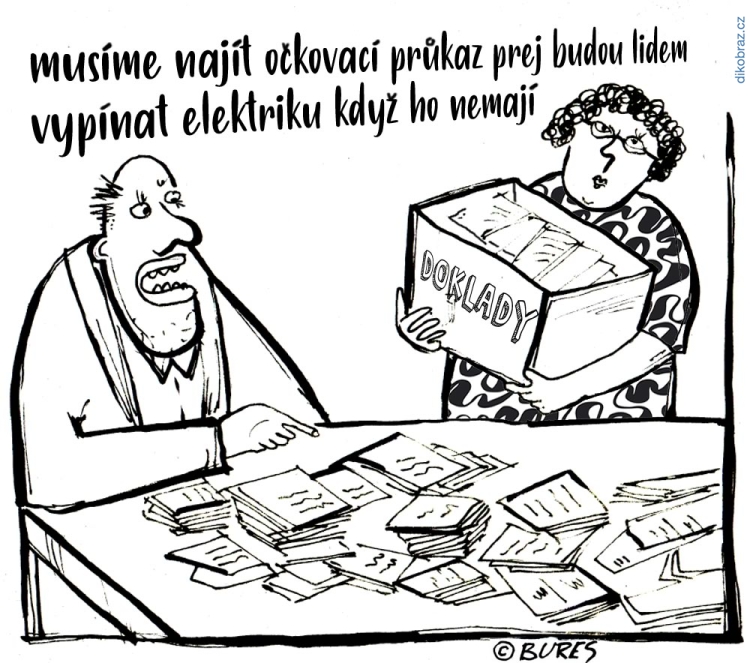 musíme najít očkovací průkaz prej budou lidem
vypínat elektriku když ho nemají
dikobraz.cz
DOKLADY
© BURES